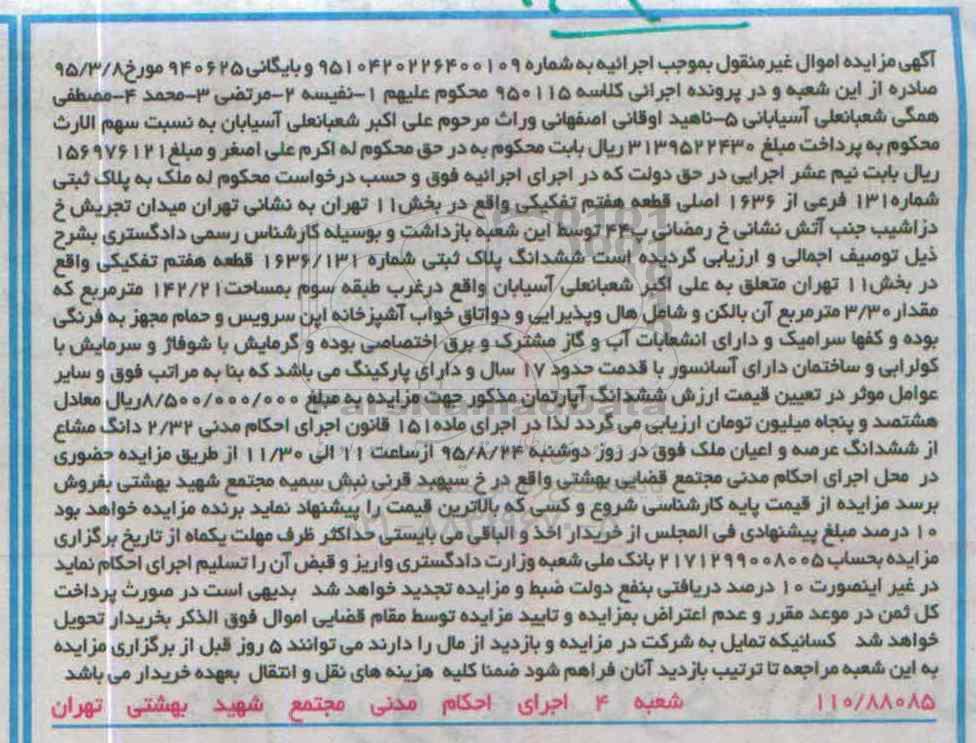 آگهی مزایده اموال غیرمنقول بموجب اجرائیه به شماره ۹۵۱۰۴۲۰۲۲۶۴۰۰۱۰۹ و بایگانی ۹۴۰۶۲۵ مورخ ۹۵/۳/۸
صادره از این شعبه و در پرونده اجرائی کلاسه ۹۵۰۱۱۵ محکوم علیهم ۱-نفیسه ۲-مرتضی ۳-محمد ۴-مصطفی
همگی شعبانعلی آسیابانی ۵-ناهید اوقانی اصفهانی وراث مرحوم علی اکبر شعبانعلی آسیابان به نسبت سهم الارث
محکوم به پرداخت مبلغ ۳۱۳۹۵۲۲۴۳۰ ریال بابت محکوم به در حق محکوم له اکرم علی اصغر و مبلغ ۱۵۶۹۷۶۱۲۱
ریال بابت نیم عشر اجرایی در حق دولت که در اجرای اجرائیه فوق و حسب درخواست محکوم له ملک به پلاک ثبتی
شماره۱۳۱ فرعی از ۱۶۳۶ اصلی قطعه هفتم تفکیکی واقع در بخش۱۱ تهران به نشانی تهران میدان تجریش خ
دزاشیب جنب آتش نشانی خ رمضانی پ۴۴ توسط این شعبه بازداشت و بوسیله کارشناس رسمی دادگستری بشرح
ذیل توصیف اجمالی و ارزیابی گردیده است ششدانگ پلاک ثبتی شماره ۱۶۳۶/۱۳۱ قطعه هفتم تفکیکی واقع
در بخش۱۱ تهران متعلق به علی اکبر شعبانعلی آسیابان واقع درغرب طبقه سوم بمساحت۱۴۲/۲۱ مترمربع که
مقدار ۳/۳۰ مترمربع آن بالکن و شامل هال وپذیرایی و دواتاق خواب آشپزخانه اپن سرویس و حمام مجهز به فرنگی
بوده و کفها سرامیک و دارای انشعابات آب و گاز مشترک و برق اختصاصی بوده و گرمایش با شوفاژ و سرمایش با
کولرابی و ساختمان دارای آسانسور با قدمت حدود ۱۷ سال و دارای پارکینگ می باشد که بنا به مراتب فوق و سایر
عوامل موثر در تعیین قیمت ارزش ششدانگ آپارتمان مذکور جهت مزایده به مبلغ ۸/۵۰۰/۰۰۰/۰۰۰ریال معادل
هشتصد و پنجاه میلیون تومان ارزیابی می گردد لذا در اجرای ماده۱۵۱ قانون اجرای احکام مدنی ۲/۳۲ دانگ مشاع
از ششدانگ عرصه و اعیان ملک فوق در روز دوشنبه ۹۵/۸/۲۴ ازساعت ۱۱ الی ۱۱/۳۰ از طریق مزایده حضوری
در محل اجرای احکام مدنی مجتمع قضایی بهشتی واقع در خ سپهبد قرنی نبش سمیه مجتمع شهید بهشتی بفروش
برسد مزایده از قیمت پایه کارشناسی شروع و کسی که بالاترین قیمت را پیشنهاد نماید برنده مزایده خواهد بود
۱۰ درصد مبلغ پیشنهادی فی المجلس از خریدار اخذ و الباقی می بایستی حداکثر ظرف مهلت یکماه از تاریخ برگزاری
مزایده بحساب ۲۱۷۱۲۹۹۰۰۸۰۰۵ بانک ملی شعبه وزارت دادگستری واریز و قبض آن را تسلیم اجرای احکام نماید
در غیر اینصورت ۱۰ درصد دریافتی بنفع دولت ضبط و مزایده تجدید خواهد شد بدیهی است در صورت پرداخت
کل ثمن در موعد مقرر و عدم اعتراض بمزایده و تایید مزایده توسط مقام قضایی اموال فوق الذکر بخریدار تحویل
خواهد شد کسانیکه تمایل به شرکت در مزایده و بازدید از مال را دارند می توانند ۵ روز قبل از برگزاری مزایده
به این شعبه مراجعه تا ترتیب بازدید آنان فراهم شود ضمنا کلیه هزینه های نقل و انتقال بعهده خریدار می باشد
۱۱۰/۸۸۰۸۵ شعبه ۴ اجرای احکام مدنی مجتمع شهید بهشتی تهران